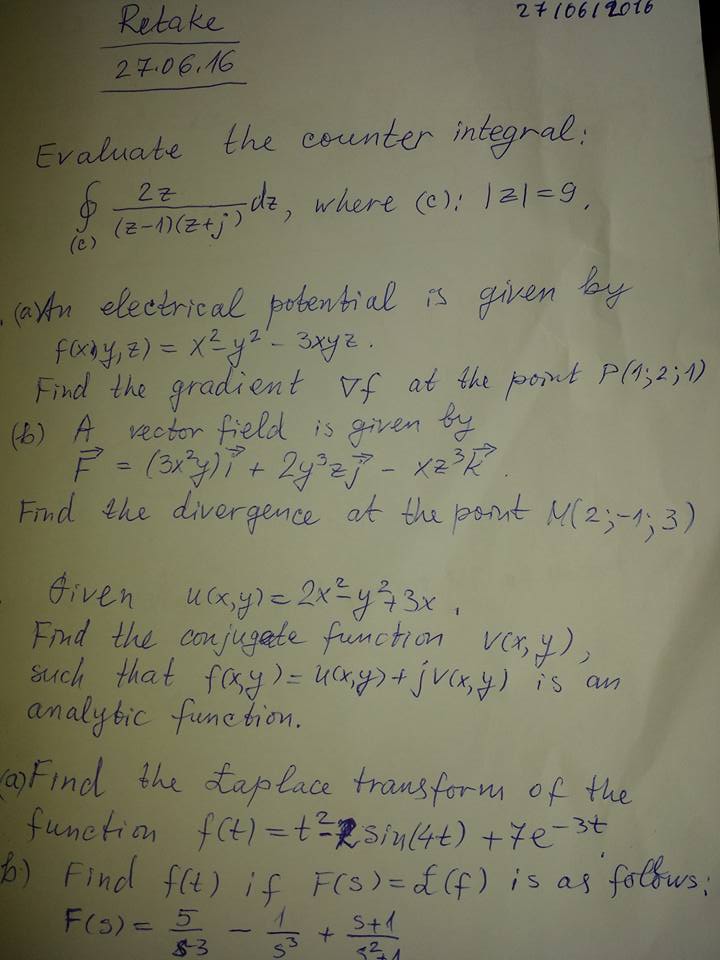 27/06/2016
Retake
27.06.16
Evaluate the counter integral:
∮(c) 2z/((z-1)(z+j)) dz, where (c): |z|=9.
(a) An electrical potential is given by
f(x,y,z) = x²-y² - 3xyz.
Find the gradient ∇f at the point P(1;2;1)
(b) A vector field is given by
F⃗ = (3x²y)i⃗ + 2y³zj⃗ - xz³k⃗.
Find the divergence at the point M(2;-1;3)
Given u(x,y)=2x²-y²+3x.
Find the conjugate function v(x,y),
such that f(x,y)=u(x,y)+jv(x,y) is an
analytic function.
(a) Find the Laplace transform of the
function f(t)=t²-2sin(4t)+7e⁻³ᵗ
b) Find f(t) if F(s)=£(f) is as follows:
F(s) = 5/(s-3) - 1/s³ + (s+1)/(s²+1)